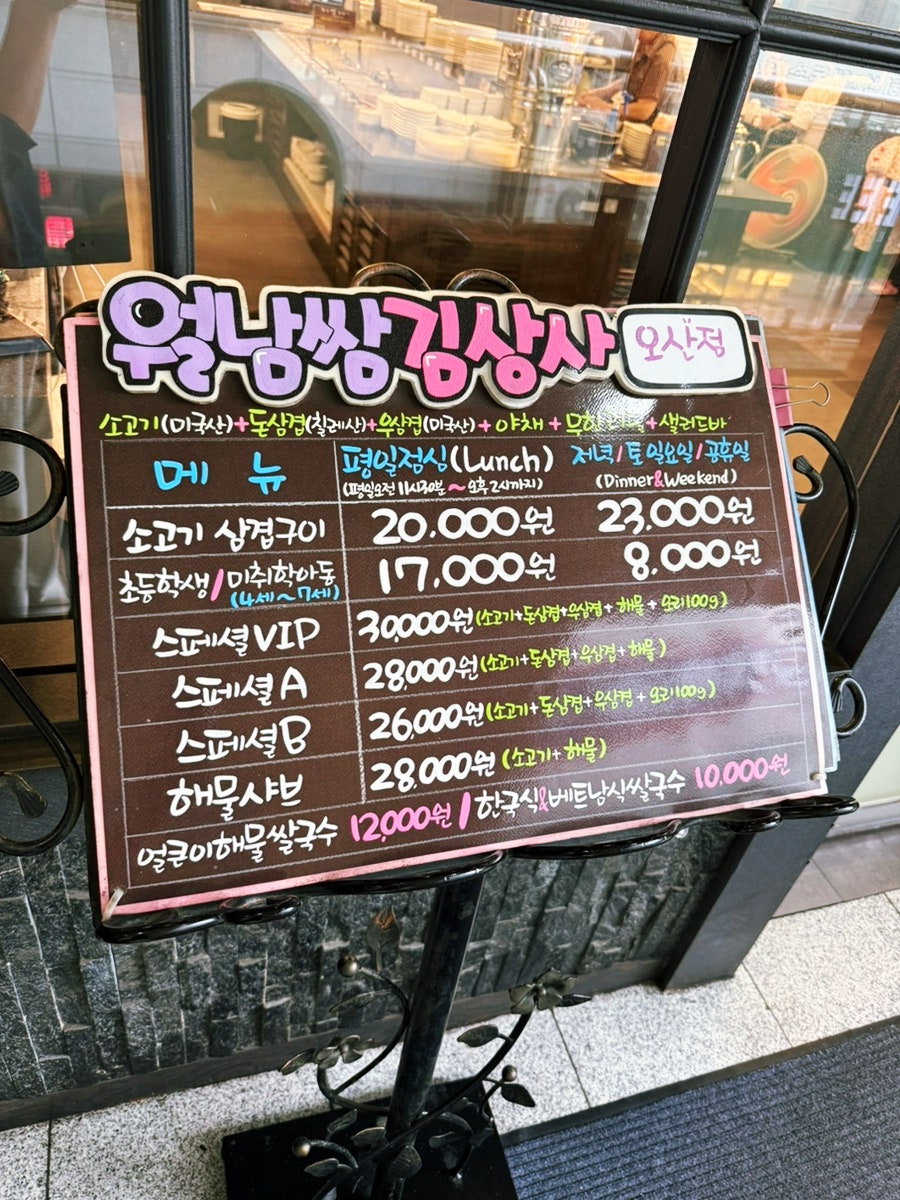 월남쌈김상사 오산점
소고기(미국산)+돈삼겹(칠레산)+우삼겹(미국산)+야채+무한리필+샐러드바
메뉴 평일점심(Lunch) 저녁/토일요일/공휴일
(평일오전 11시30분~오후 2시까지) (Dinner&Weekend)
소고기 삼겹구이 20.000원 23.000원
초등학생/미취학아동 17,000원 8.000원
(4세~7세)
스페셜VIP 30,000원(소고기+돈삼겹+우삼겹+해물+오리100g)
스페셜A 28,000원(소고기+돈삼겹+우삼겹+해물)
스페셜B 26,000원(소고기+돈삼겹+우삼겹+오리100g)
해물샤브 28,000원(소고기+해물)
얼큰이해물쌀국수 12,000원/한국식&베트남식쌀국수 10,000원